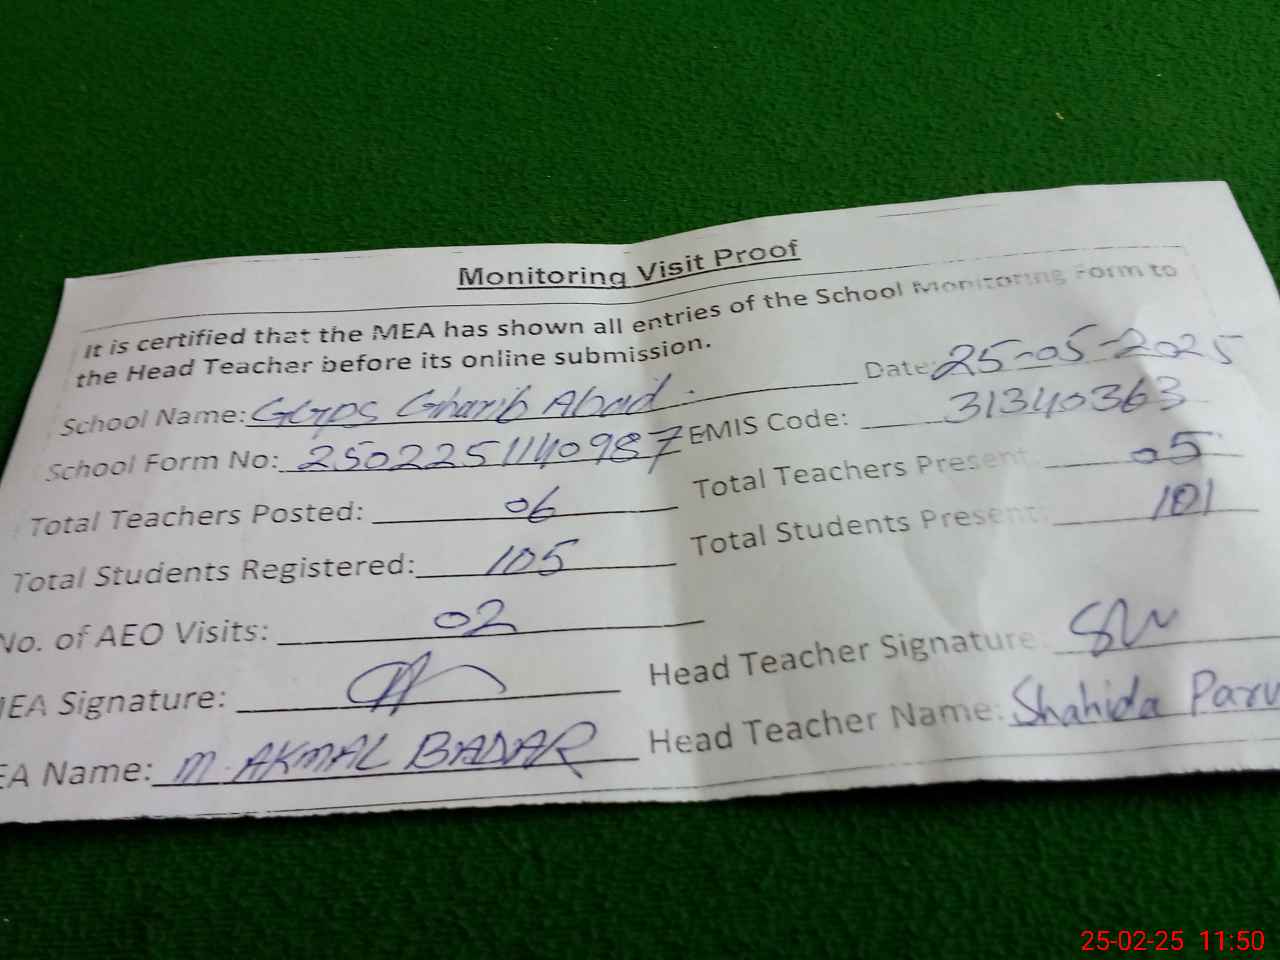 Monitoring Visit Proof
It is certified that the MEA has shown all entries of the School Monitoring Form to
the Head Teacher before its online submission.
Date: 25-05-2025
School Name: GGPS Gharib Abad.
EMIS Code: 31340363
School Form No: 2502251140987
Total Teachers Present: 05
Total Teachers Posted: 06
Total Students Present: 101
Total Students Registered: 105
No. of AEO Visits: 02
Head Teacher Signature:
MEA Signature:
Head Teacher Name: Shahida Parv
EA Name: M. AKMAL BADAR
25-02-25 11:50